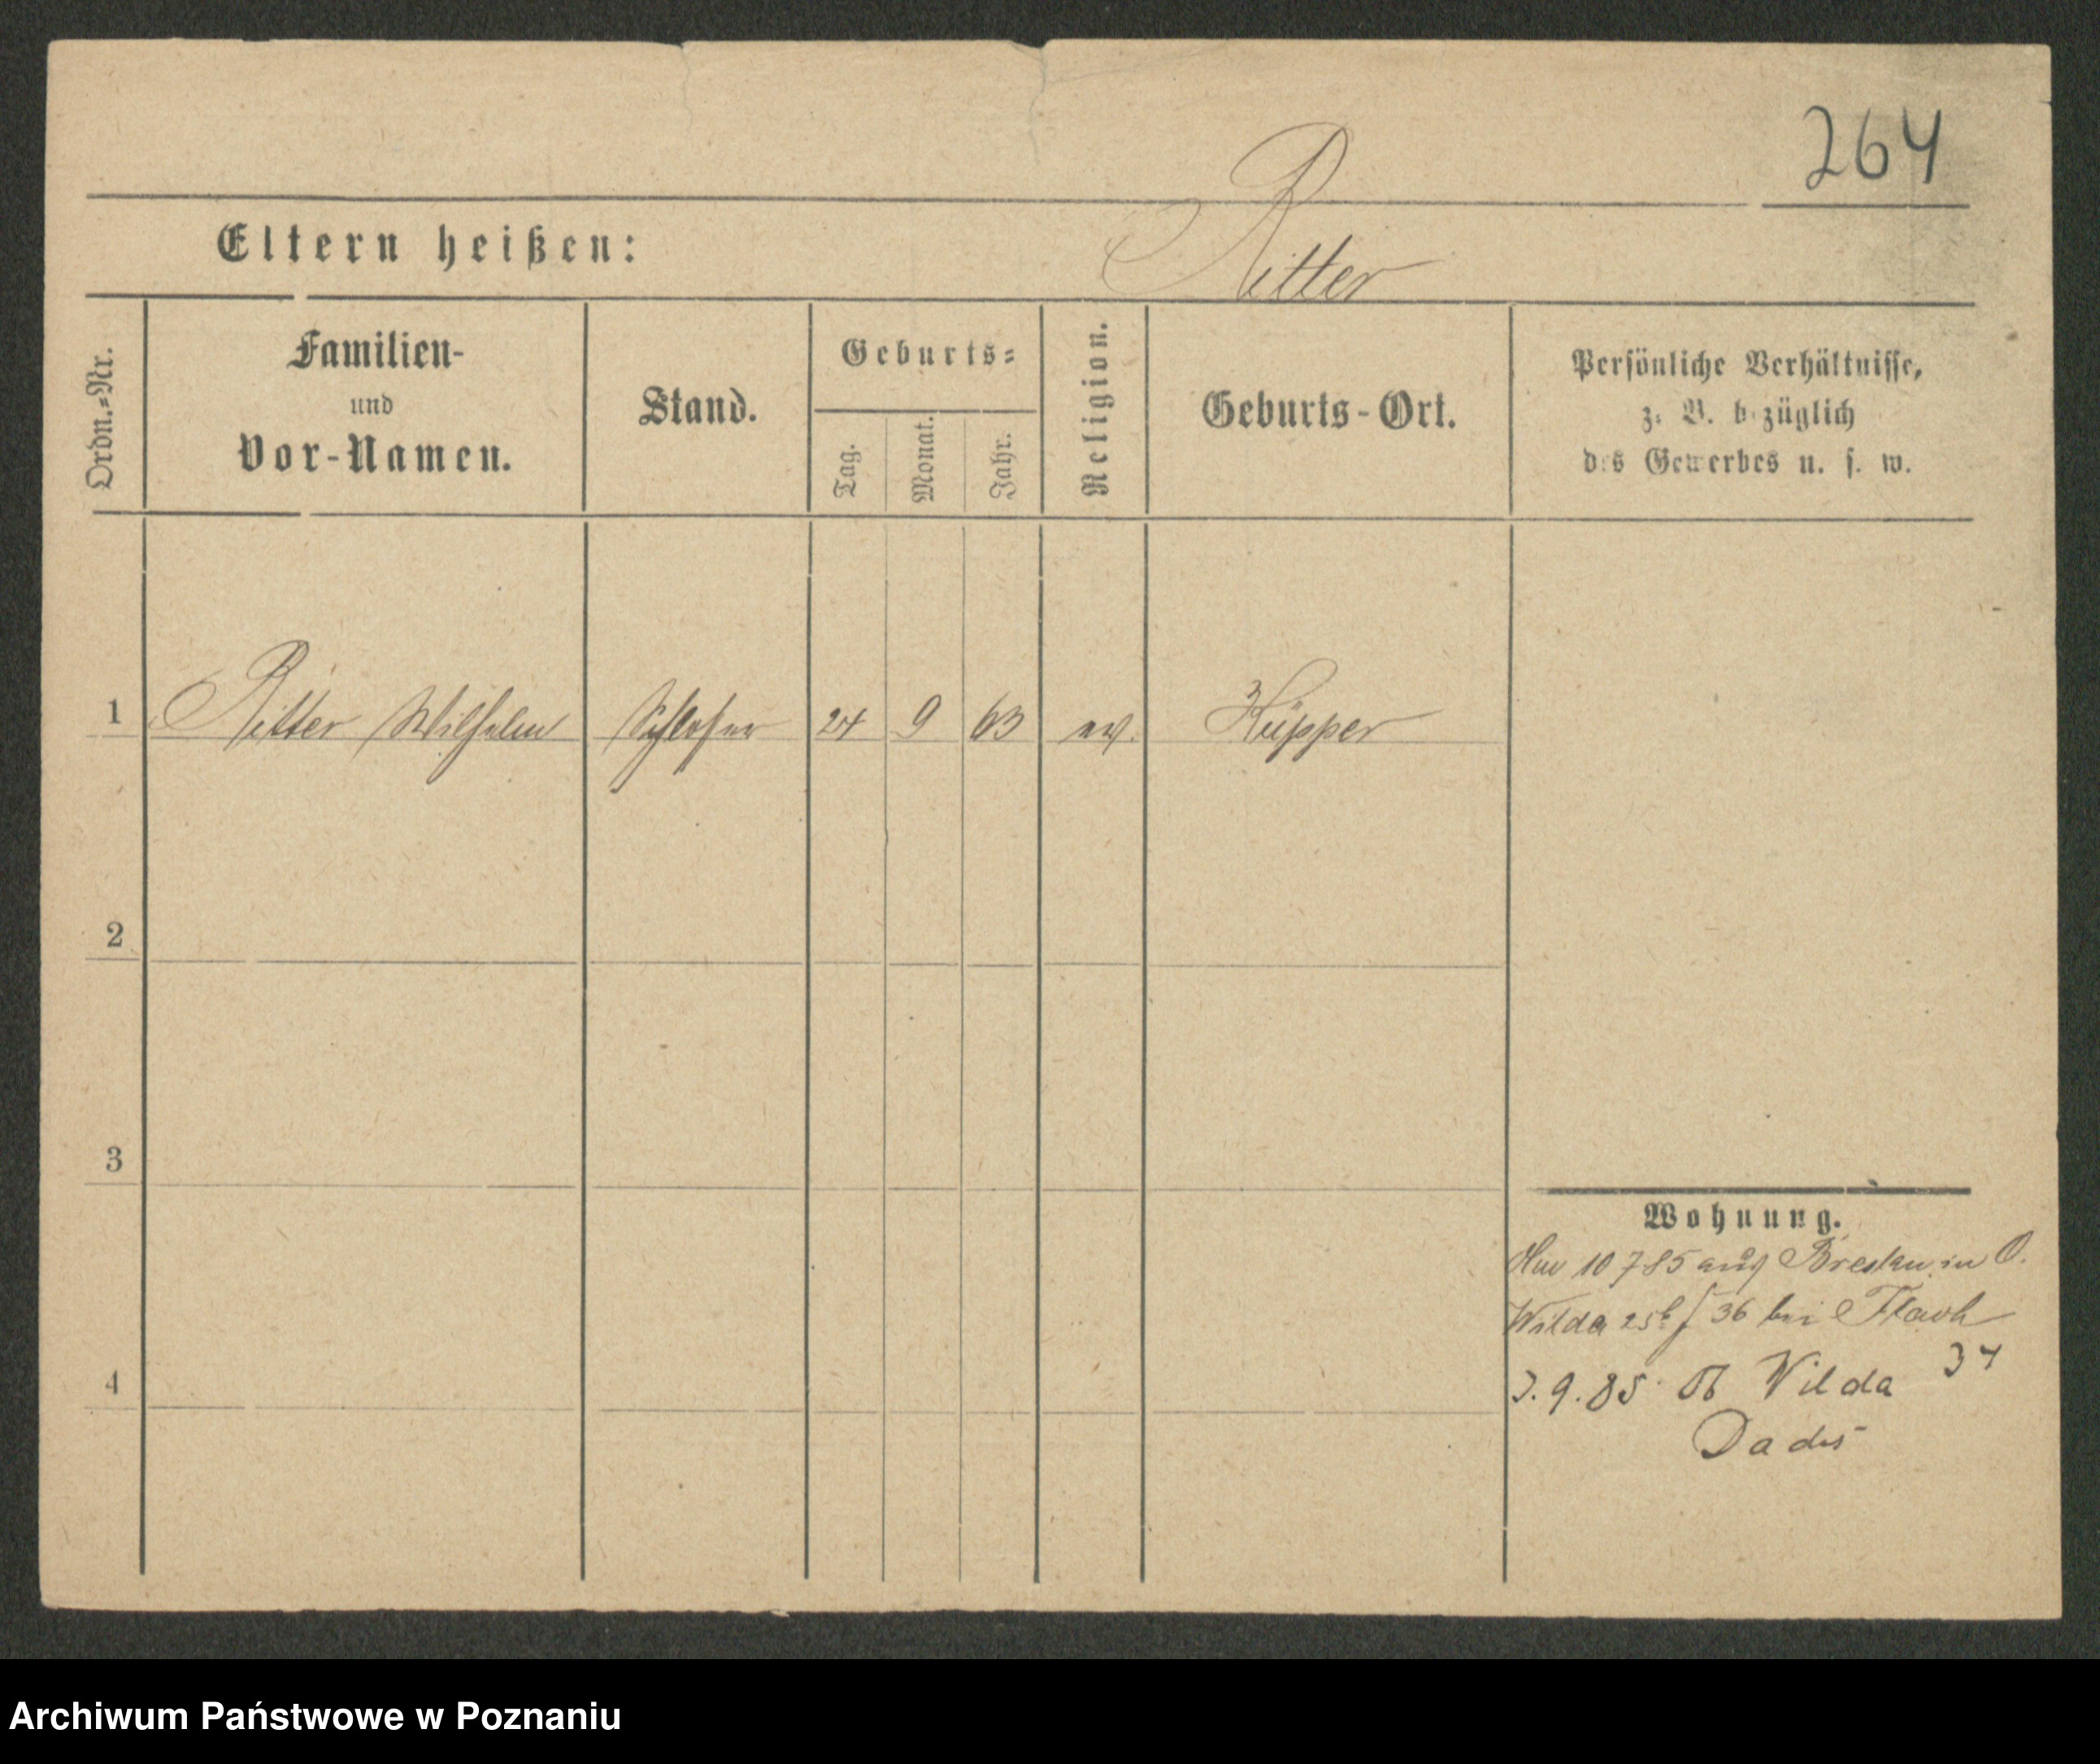 264
Ritter
Eltern heißen:
Ordn.=Nr.
Familien-
und
Vor-Namen.
Stand.
Geburts=
Tag.
Monat.
Jahr.
Religion.
Geburts-Ort.
Persönliche Verhältnisse,
z. B. bezüglich
des Gewerbes u. s. w.
1 Ritter Wilhelm Schlosser 24 9 63 ev. Küpper
2
3
4
Wohnung.
10 7 85 aus Breslau in O.
Wilda 25b/36 bei
3.9.85. O Wilda 34
Archiwum Państwowe w Poznaniu